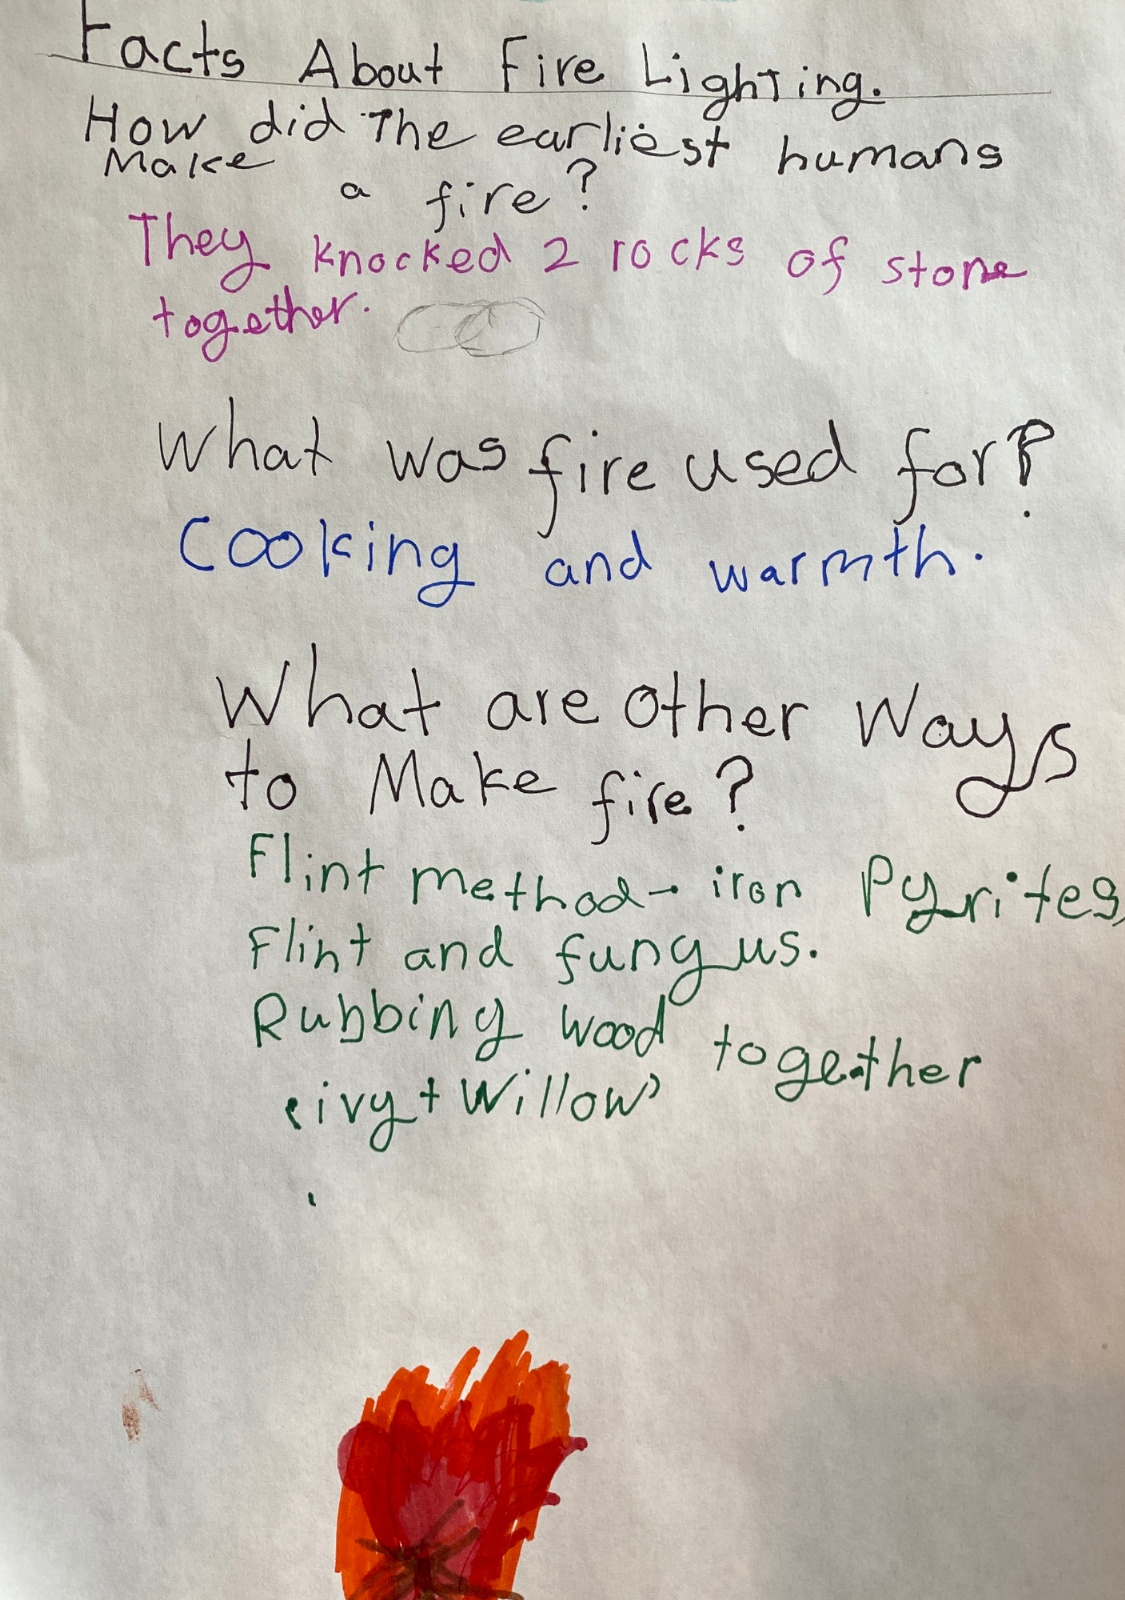 Facts About Fire Lighting.
How did The earliest humans
Make a fire?
They knocked 2 rocks of stone
together.
What was fire used for?
Cooking and warmth.
What are other Ways
to Make fire?
Flint method - iron Pyrites,
Flint and fungus.
Rubbing wood together
'ivy + Willow'